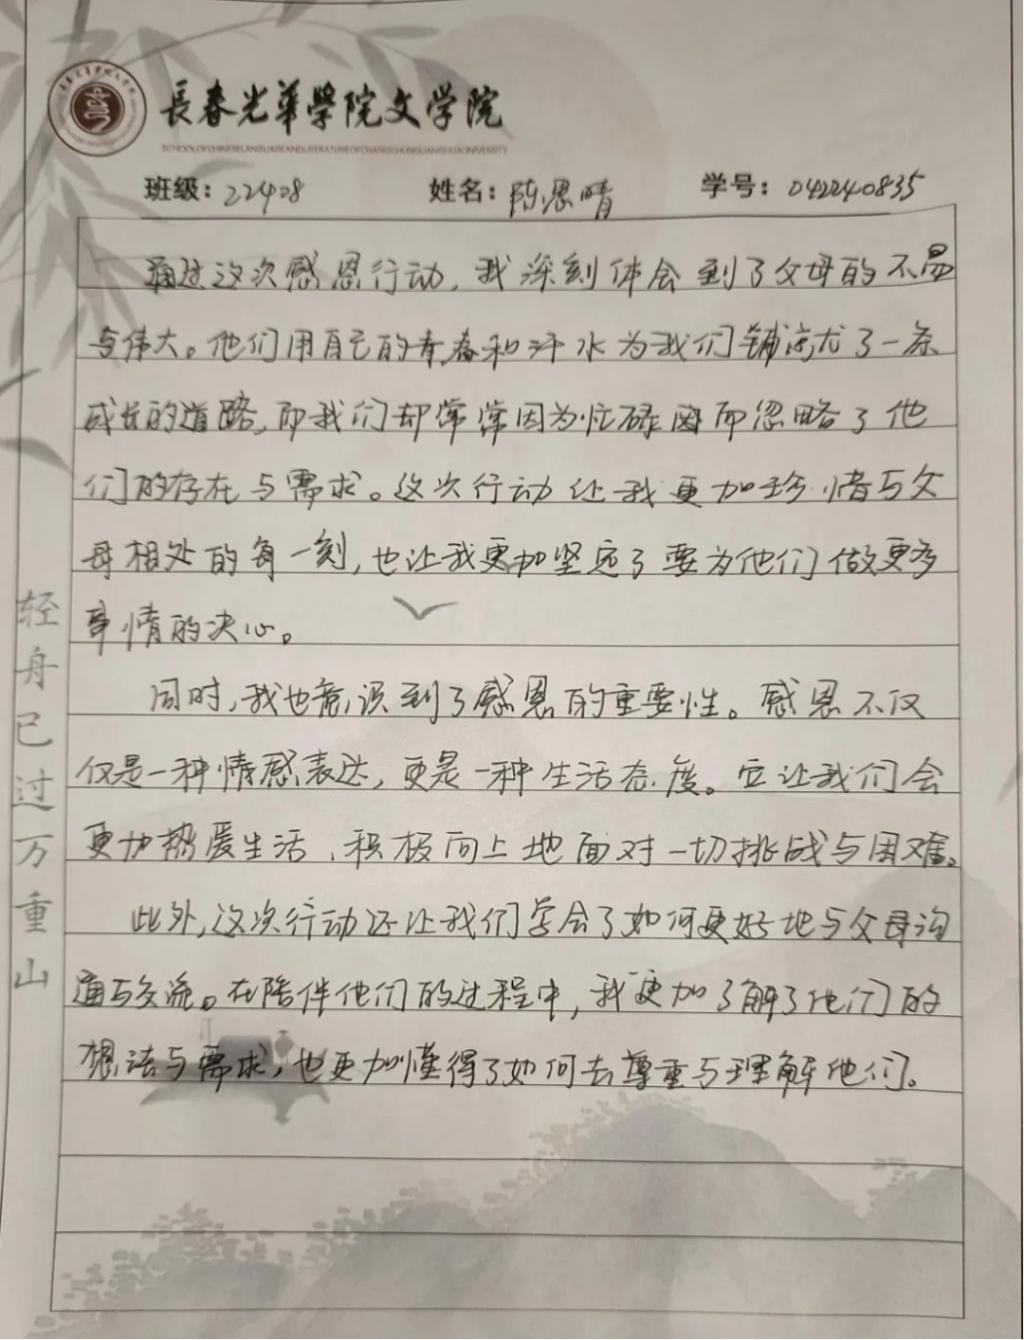 長春光華學院文学院
SCHOOL OF CHINESE LANGUAGE AND LITERATURE OF CHANGCHUN GUANGHUA UNIVERSITY
班级：22408 姓名：陈思晴 学号：042240835
通过这次感恩行动，我深刻体会到了父母的不易
与伟大。他们用自己的青春和汗水为我们铺就了一条
成长的道路，而我们却常常因为忙碌而忽略了他
们的存在与需求。这次行动让我更加珍惜与父
母相处的每一刻，也让我更加坚定了要为他们做更多
事情的决心。
同时，我也意识到了感恩的重要性。感恩不仅
仅是一种情感表达，更是一种生活态度。它让我们会
更加热爱生活、积极向上地面对一切挑战与困难。
此外，这次行动还让我们学会了如何更好地与父母沟
通与交流。在陪伴他们的过程中，我更加了解了他们的
想法与需求，也更加懂得了如何去尊重与理解他们。
轻舟已过万重山